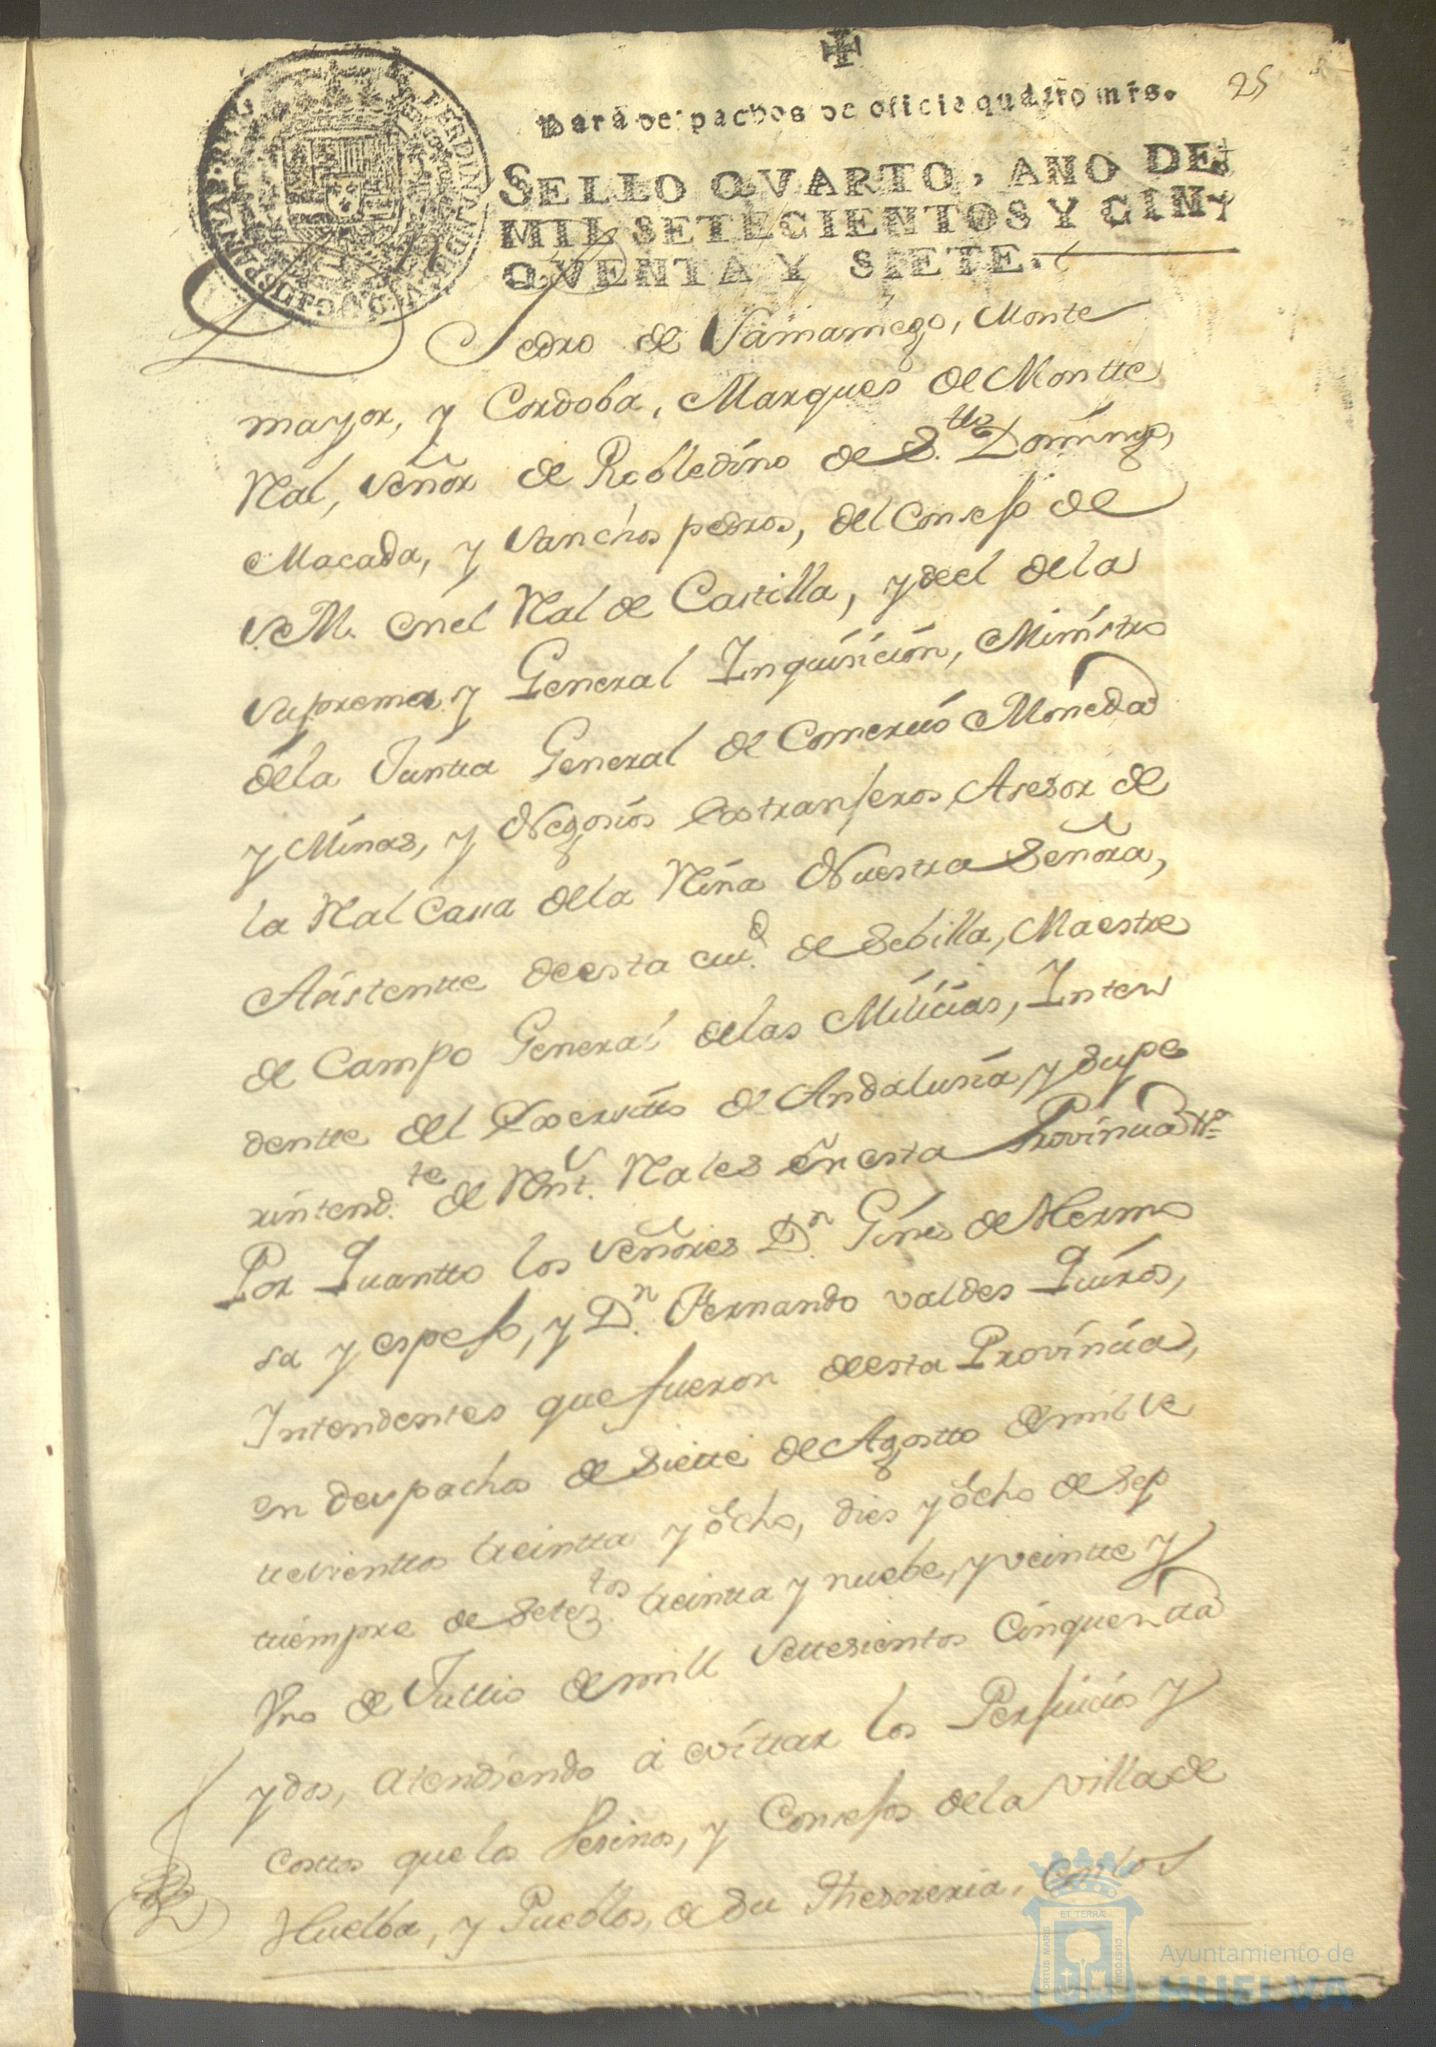 25
Para despachos de oficio quatro mrs.
SELLO QVARTO, AÑO DE
MIL SETECIENTOS Y CIN
QVENTA Y SIETE.
Pedro de Samaniego, Monte
mayor, y Cordoba, Marques de Montte
Ral, Señor de Robledino de S.tto Domingo,
Macada, y Sanchos pedros, del Consejo de
S. M. en el Ral de Castilla, y de el de la
Suprema y General Inquisicion, Ministro
de la Juntta General de Comercio Moneda
y Minas, y Negosios Extranjeros, Asesor de
la Ral Cassa de la Reina Nuestra Señora,
Asistentte de esta ciu.d de Sebilla, Maestre
de Campo General de las Milicias, Inten
dentte del Exercitto de Andalusia y Supe
rintend.te de Rent.s Rales en esta Provincia &.a
Por Quantto los Señores D.n Gines de Hermo
sa y espejo, y D.n Fernando valdes Quiros,
Intendentes que fueron de esta Provincia,
en despachos de Siette de Agostto de mil se
ttesienttos treintta y ocho, dies y ocho de Sep
ttiempre de Setez.tos treintta y nuebe, y veintte y
Vno de Jullio de mill Settesientos Cinquentta
y dos, atendiendo a evittar los Perjuicios y
costtos que los Vesinos, y Consejos de la Villa de
Huelba, y Pueblos, de su Thesoreria, en los
ET TERRÆ
PORTUS MARIS
CUSTODIA
Ayuntamiento de
HUELVA